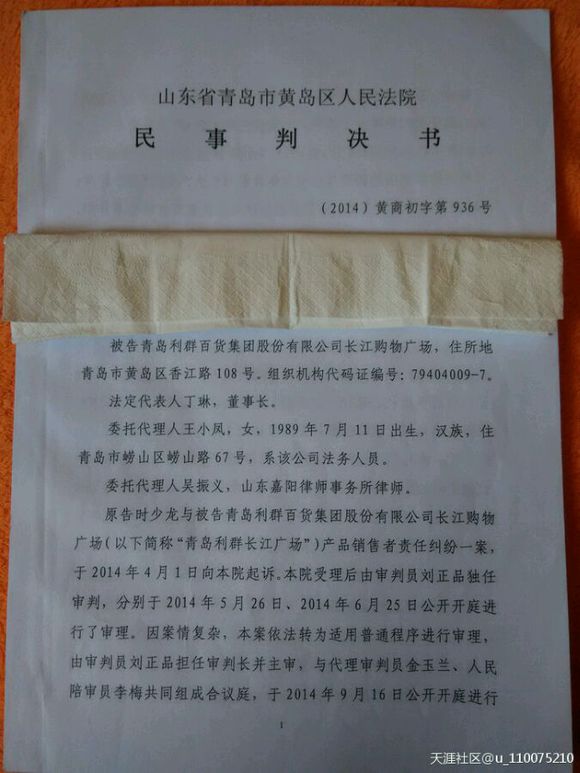 山东省青岛市黄岛区人民法院
民事判决书
（2014）黄商初字第936号
被告青岛利群百货集团股份有限公司长江购物广场，住所地
青岛市黄岛区香江路108号。组织机构代码证编号：79404009-7。
法定代表人丁琳，董事长。
委托代理人王小凤，女，1989年7月11日出生，汉族，住
青岛市崂山区崂山路67号，系该公司法务人员。
委托代理人吴振义，山东嘉阳律师事务所律师。
原告时少龙与被告青岛利群百货集团股份有限公司长江购物
广场(以下简称“青岛利群长江广场”)产品销售者责任纠纷一案，
于2014年4月1日向本院起诉。本院受理后由审判员刘正品独任
审判，分别于2014年5月26日、2014年6月25日公开开庭进
行了审理。因案情复杂，本案依法转为适用普通程序进行审理，
由审判员刘正品担任审判长并主审，与代理审判员金玉兰、人民
陪审员李梅共同组成合议庭，于2014年9月16日公开开庭进行
1
天涯社区@u_110075210